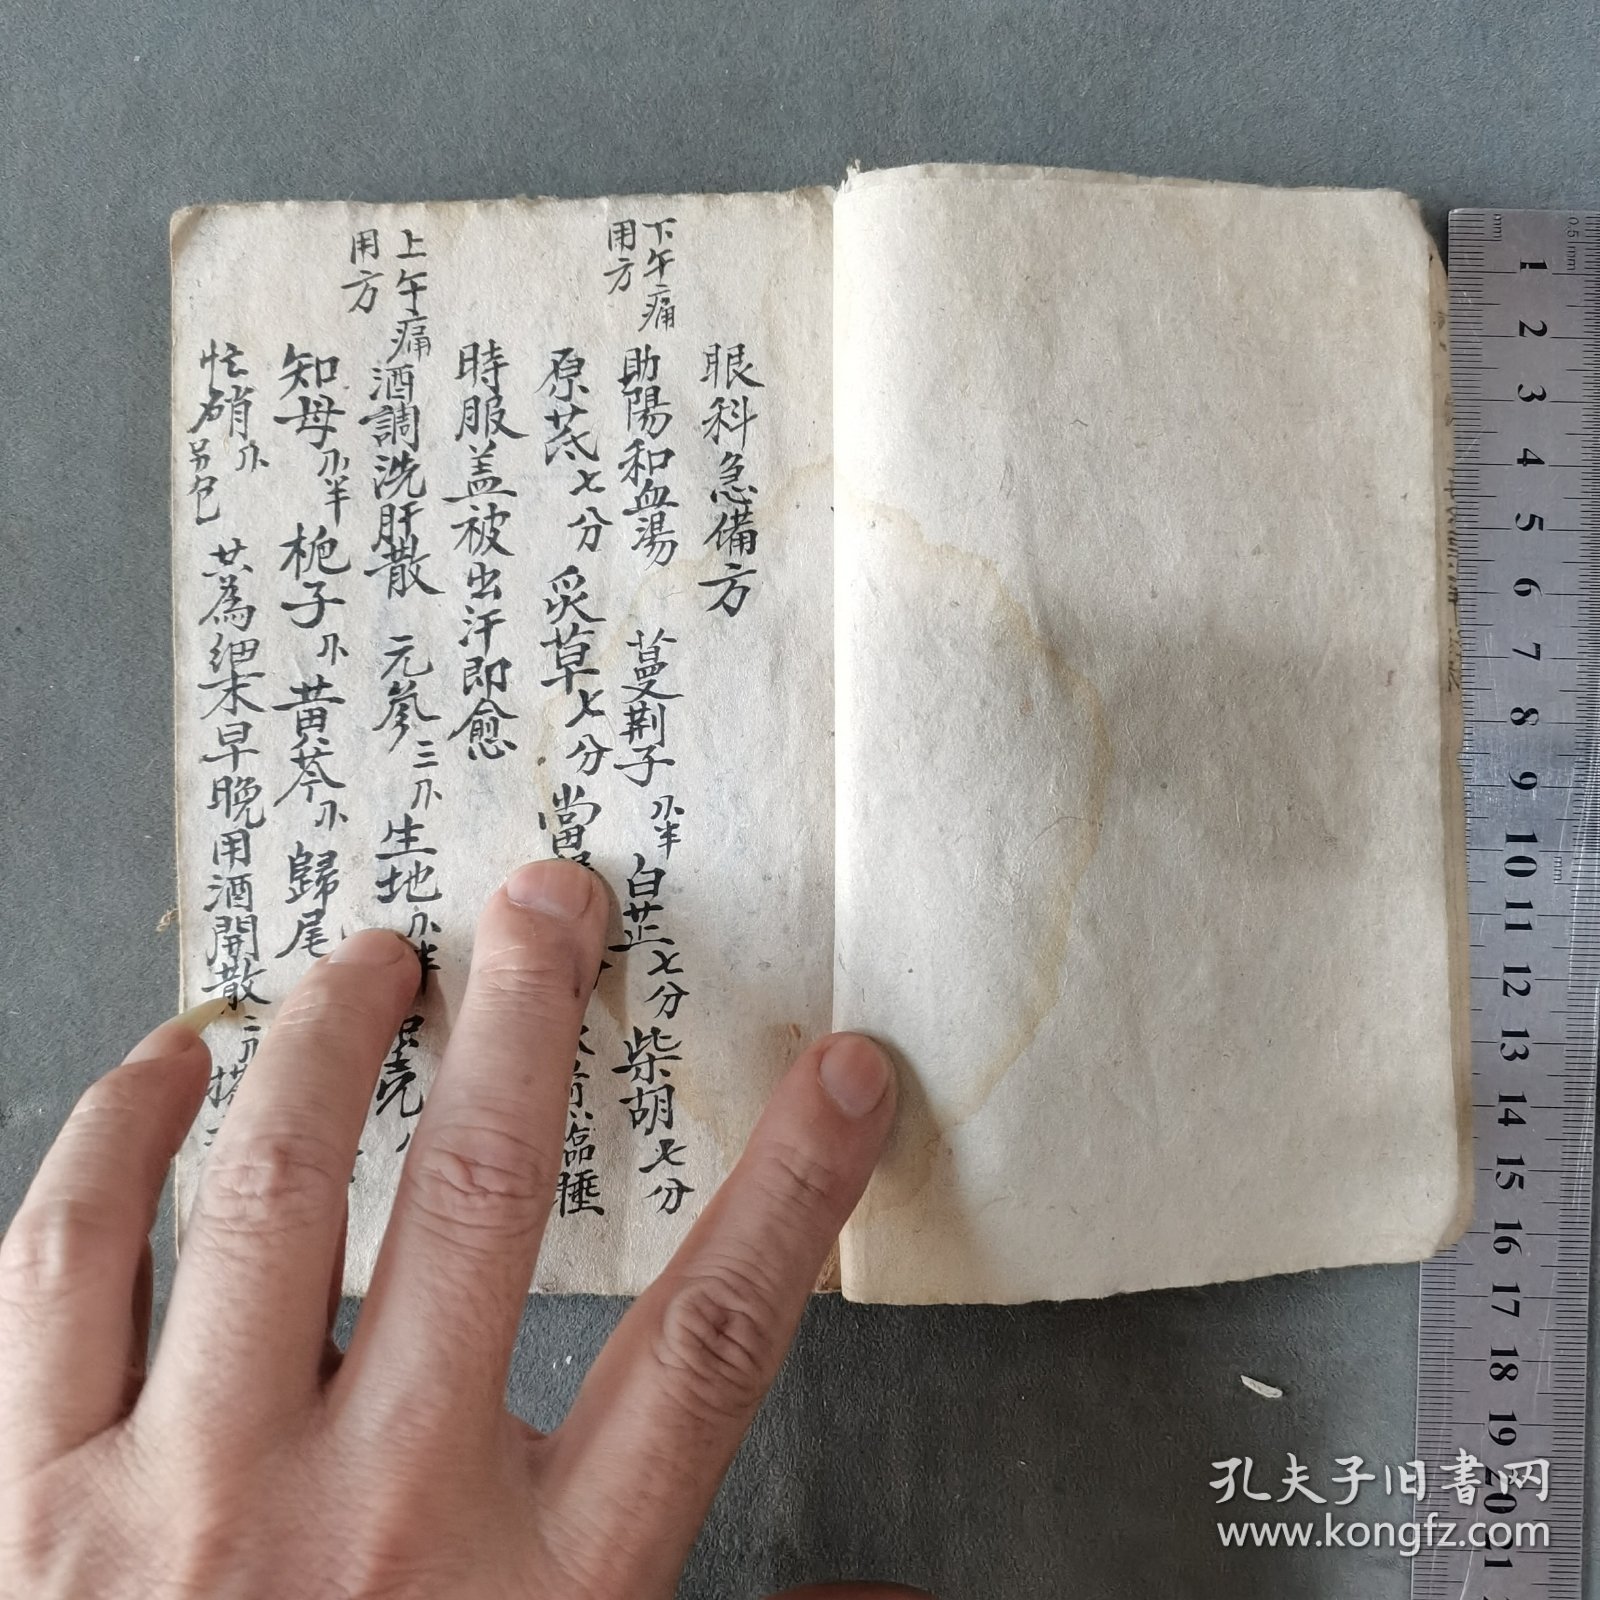 眼科急備方
下午痛
用方
助陽和血湯 蔓荆子 半 白芷七分 柴胡七分
原芪七分 炙草七分 當 臨睡
時服盖被出汗即愈
上午痛
用方
酒調洗肝散 元參三 生地 半
知母 半 梔子 黄芩 歸尾
忙硝 另包 共為細末早晚用酒開散二
1
2
3
4
5
6
7
8
9
10
11
12
13
14
15
16
17
18
19
20
21
0.5mm
mm
孔夫子旧书网
www.kongfz.com